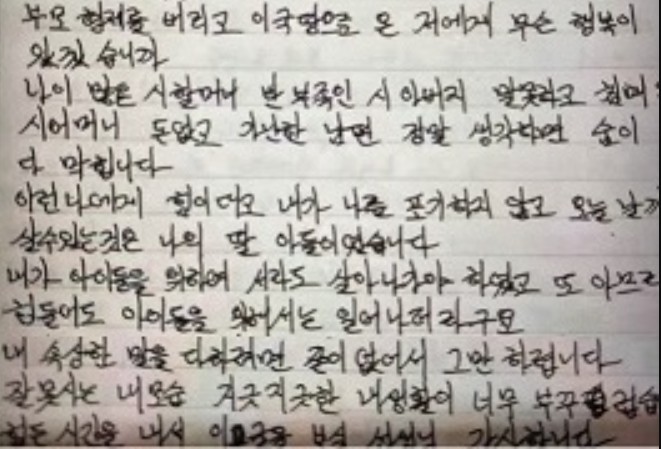 부모 형제를 버리고 이국땅으로 온 저에게 무슨 행복이
있겠 습니까
나이 많은 시할머니 반 부족인 시 아버지 말못하고
시어머니 돈없고 가난한 남편 정말 생각하면 숨이
다 막힙니다
이런 나에게 힘이 되고 내가 나를 포기하지 않고 오늘 날까
살수있는것은 나의 딸 아들이었습니다
내가 아이들을 위하여 서라도 살아나가야 하였고 또 아무리
힘들어도 아이들을 위해서는 일어나더라구요
내 속상한 말을 다하려면 끝이 없어서 그만 하렵니다
잘못사는 내모습 지긋지긋한 내생활이 너무 부끄럽습
힘든 시간을 내서 이 글을 보신 선생님 감사합니다